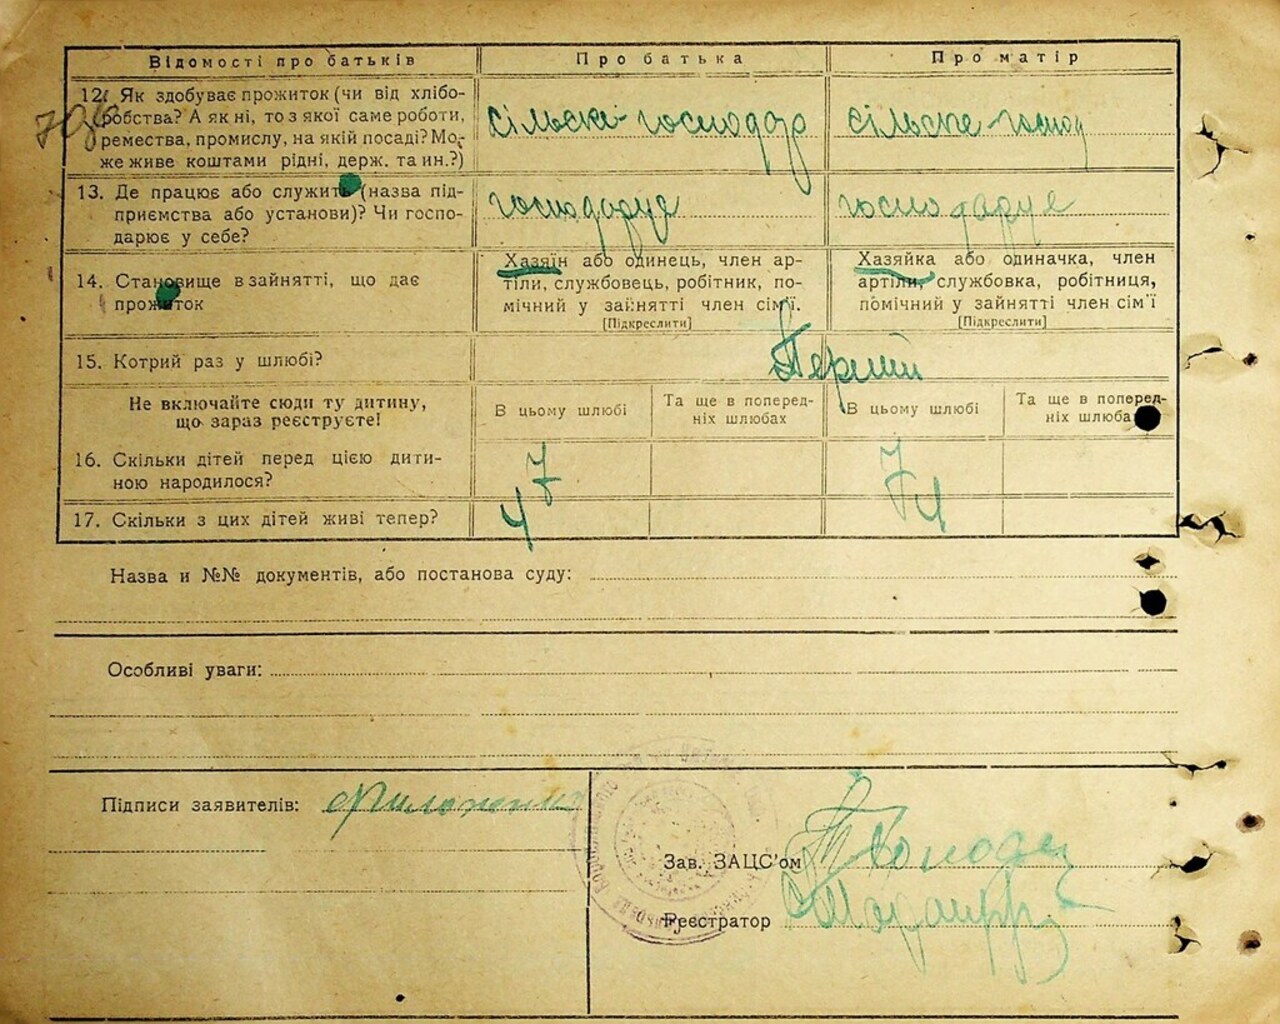 Відомості про батьків
Про батька
Про матір
12. Як здобуває прожиток (чи від хлібо-
робства? А як ні, то з якої саме роботи,
ремества, промислу, на якій посаді? Мо-
же живе коштами рідні, держ. та ин.?)
сільске-господар
сільске-господ
13. Де працює або служить (назва під-
приємства або установи)? Чи госпо-
дарює у себе?
господарує
господарує
14. Становище в зайнятті, що дає
прожиток
Хазяїн або одинець, член ар-
тіли, службовець, робітник, по-
мічний у зайнятті член сім'ї.
[Підкреслити]
Хазяйка або одиначка, член
артіли, службовка, робітниця,
помічний у зайнятті член сім'ї
[Підкреслити]
15. Котрий раз у шлюбі?
Перший
Не включайте сюди ту дитину,
що зараз реєструєте!
В цьому шлюбі
Та ще в поперед-
ніх шлюбах
В цьому шлюбі
Та ще в поперед-
ніх шлюбах
16. Скільки дітей перед цією дити-
ною народилося?
7
7
17. Скільки з цих дітей живі тепер?
4
4
Назва и №№ документів, або постанова суду:
Особливі уваги:
Підписи заявителів:
Зав. ЗАЦС'ом
Реєстратор